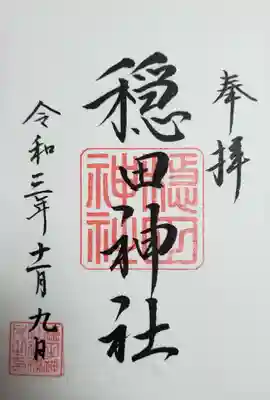 奉拝
穏田神社
令和三年十一月九日
穏田神社